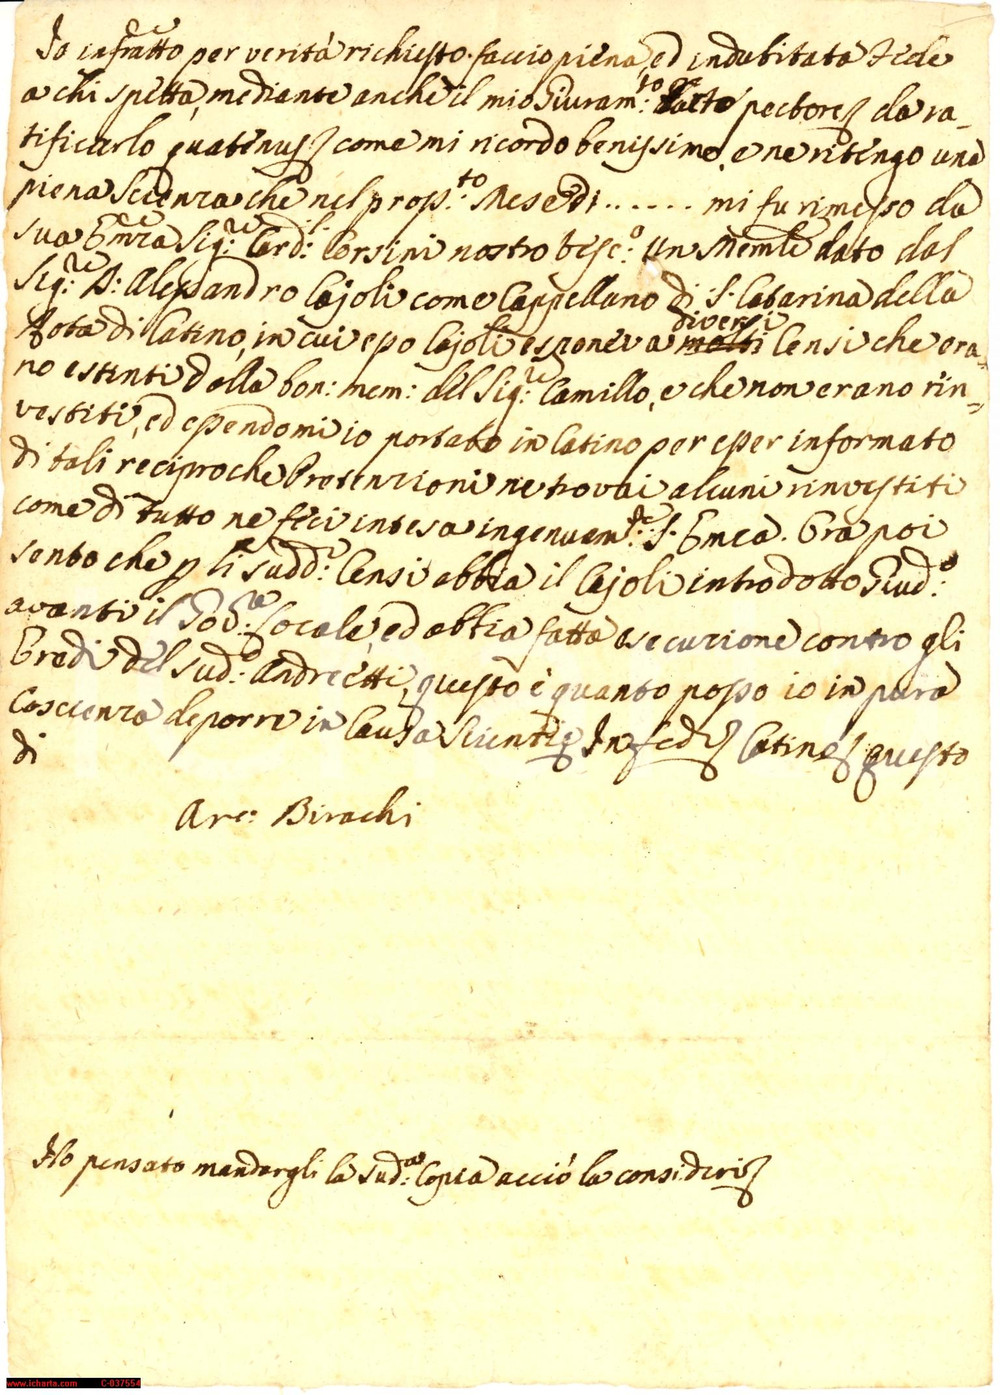 Io infratto per verità richiesto faccio piena, ed indubitata Fede
a chi spetta, mediante anche il mio Giuram:to tacto pectore da ra-
tificarlo quatenus come mi ricordo benissimo, e ne ritengo una
piena Scienza che nel pross:to Mese di...... mi fu rimesso da
sua Emza Sig:re Card:l Corsini nostro Vesc:o un Memle dato dal
Sig:re D: Alessandro Cajoli come Cappellano di S: Catarina della
Rota di Catino, in cui esso Cajoli esponeva molti diversi Censi che era-
no estinti dalla bon: mem: del Sig:re Camillo, e che non erano rin-
vestiti, ed essendomi io portato in Catino per esser informato
di tali reciproche Pretenzioni ne trovai alcuni rinvestiti
come di tutto ne feci intesa ingenuam:te S: Emza. Ora poi
sento che p li sudd:i Censi abbia il Cajoli introdotto Giud:o
avanti il Gov:re Locale, ed abbia fatta esecuzione contro gli
Eredi del sud:o Andreetti, questo è quanto posso io in pura
Coscienza deporre in Causa Scientie In fede Catino questo
di
Arc: Birachi
Ho pensato mandargli la sud:a Copia acciò la consideri
www.icharta.com C-037554